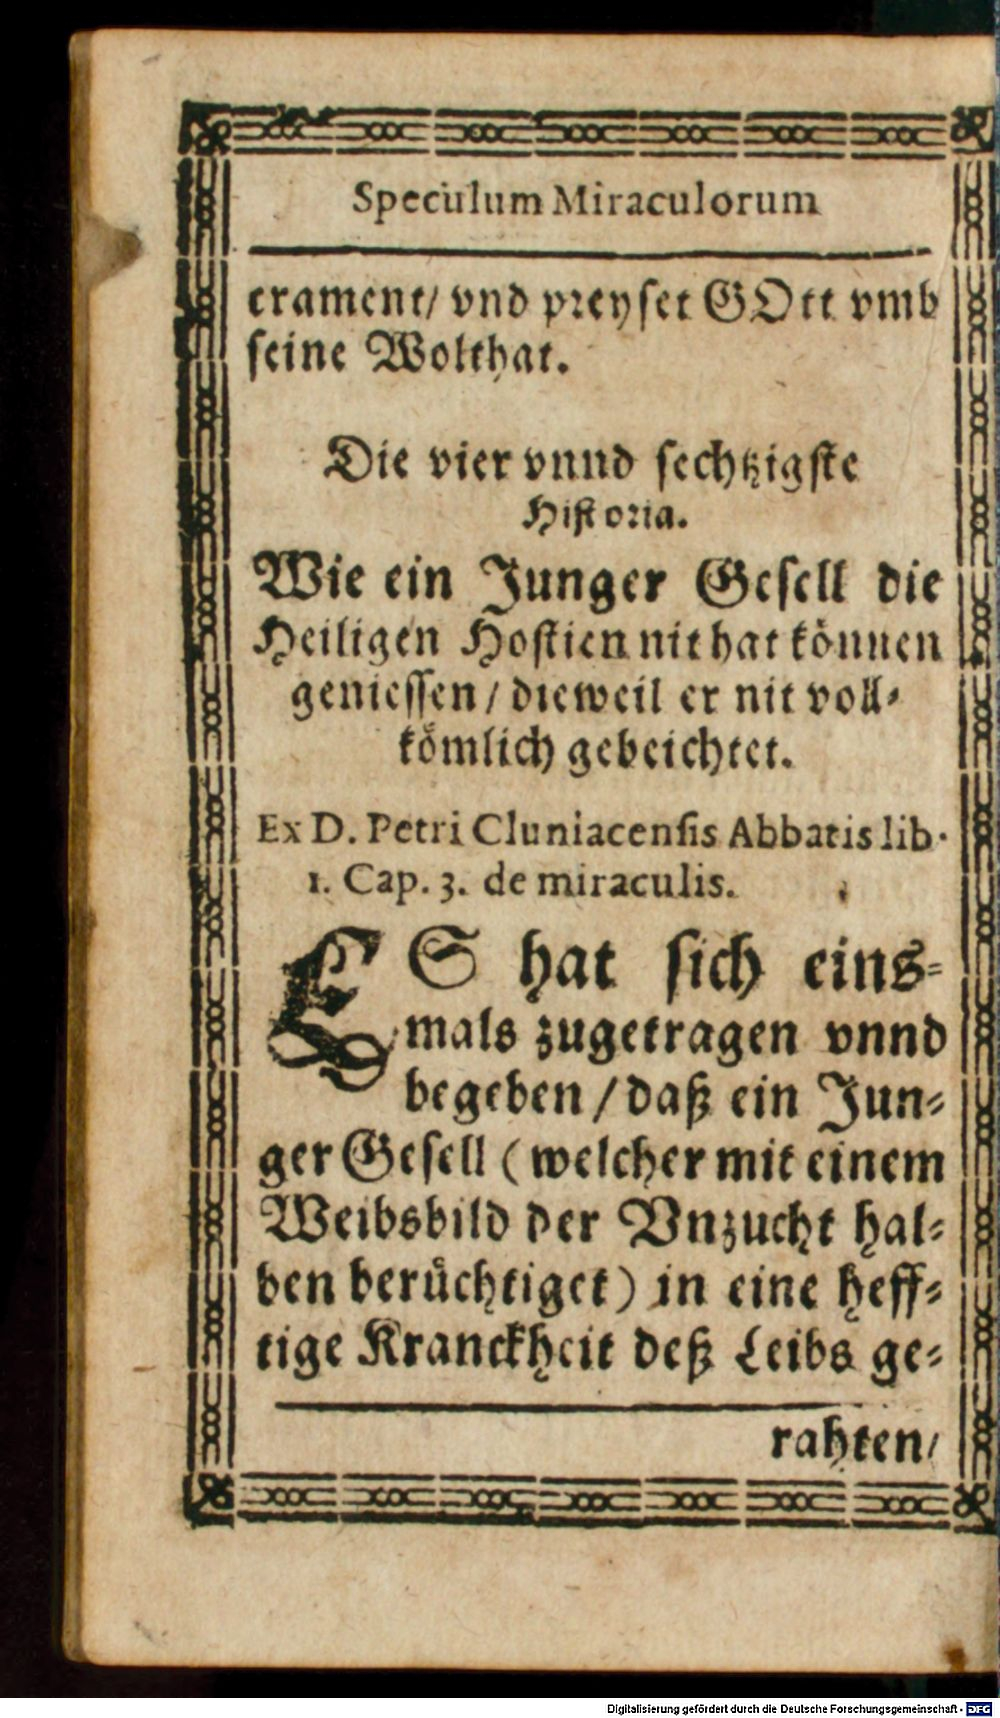 Speculum Miraculorum
crament/ vnd preyset GOtt vmb
seine Wolthat.
Die vier vnnd sechtzigste
Historia.
Wie ein Junger Gesell die
Heiligen Hostien nit hat können
geniessen/ dieweil er nit voll-
kömlich gebeichtet.
Ex D. Petri Cluniacensis Abbatis lib.
1. Cap. 3. de miraculis.
ES hat sich eins-
mals zugetragen vnnd
begeben / daß ein Jun-
ger Gesell (welcher mit einem
Weibsbild der Vnzucht hal-
ben berüchtiget) in eine heff-
tige Kranckheit deß Leibs ge-
rahten/
Digitalisierung gefördert durch die Deutsche Forschungsgemeinschaft - DFG